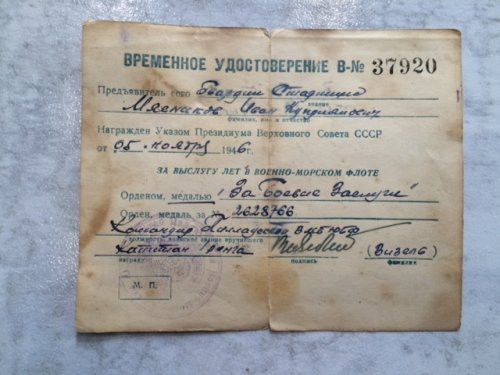 ВРЕМЕННОЕ УДОСТОВЕРЕНИЕ В-№ 37920
Предъявитель сего Гвардии Старшина
звание
Мясников Иван
фамилия, имя и отчество
Награжден Указом Президиума Верховного Совета СССР
от 05 ноября 1946г.
ЗА ВЫСЛУГУ ЛЕТ В ВОЕННО-МОРСКОМ ФЛОТЕ
Орденом, медалью "За Боевые Заслуги"
Орден, медаль за № 2628766
Командир
должность, воинское звание вручившего
Капитан ранга (Визель)
награду подпись фамилия
М. П.